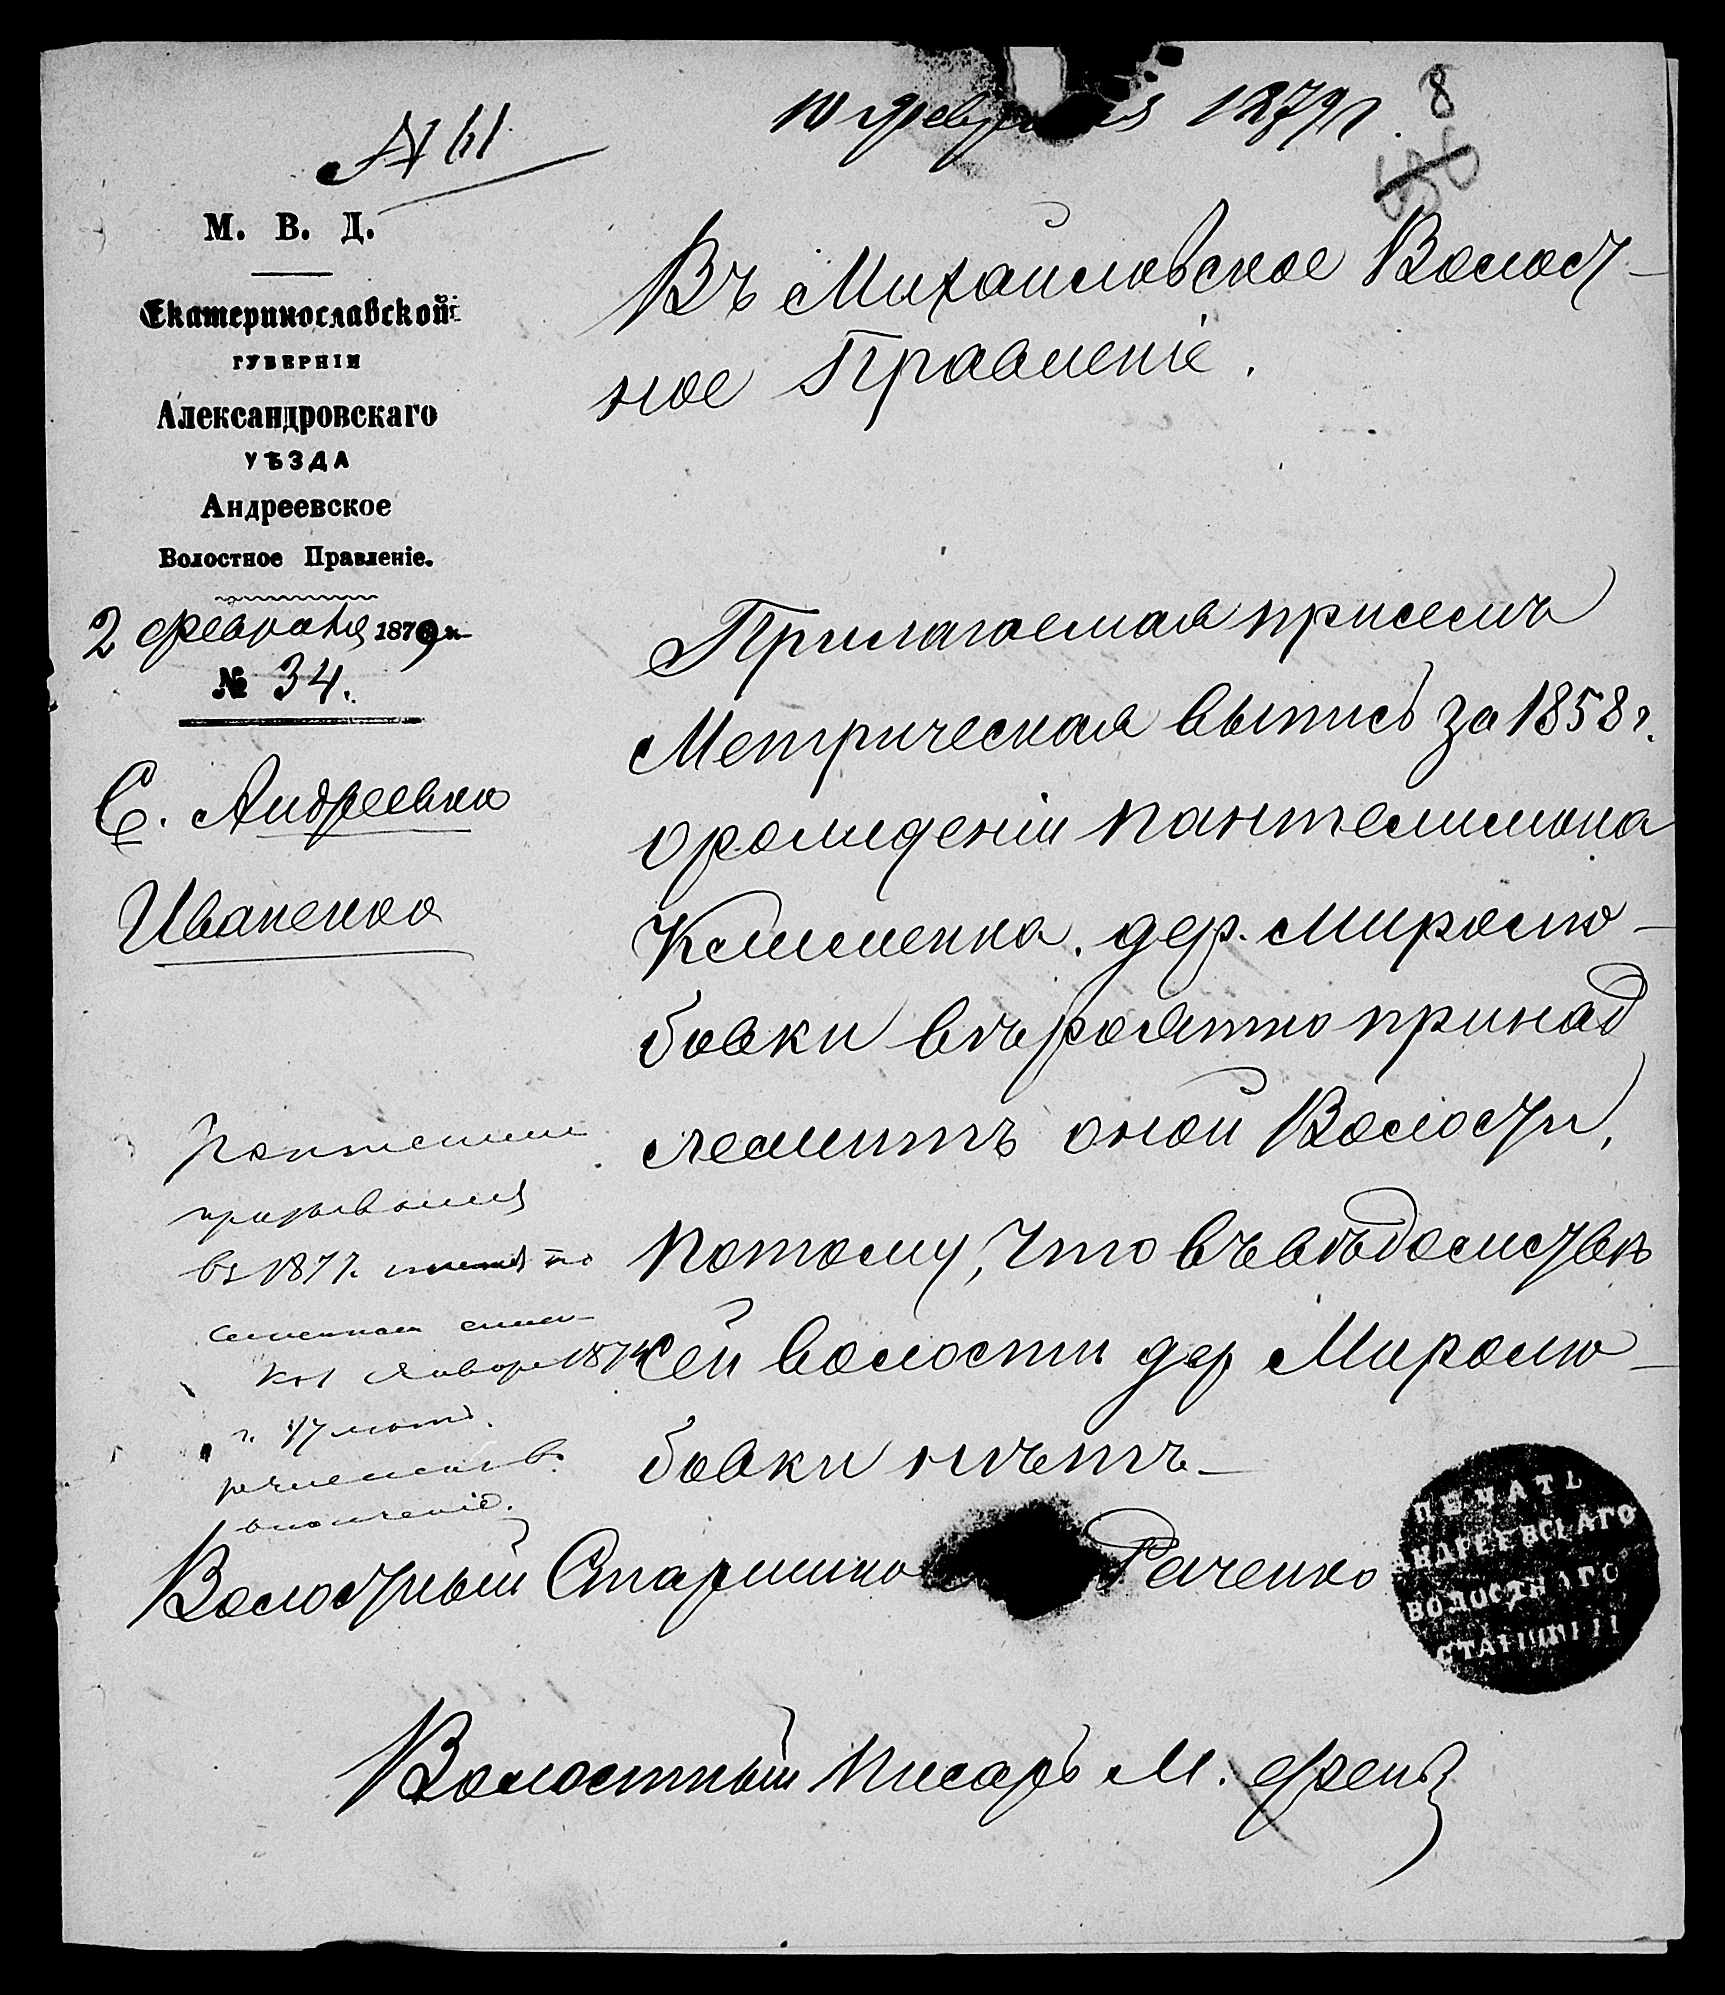 № 61
10 февраля 1879 г.
8
М. В. Д.
Екатеринославской
ГУБЕРНІИ
Александровскаго
УѢЗДА
Андреевское
Волостное Правленіе.
2 февраля 1879 г.
№ 34.
С. Андреевка
Иваненко
Въ Михайловское Волост-
ное Правленіе.
Прилагаемая при семъ
Метрическая выпись за 1858 г.
о рожденіи Пантелимона
Клименка. дер. Миролю-
бовки вѣроятно принад
лежитъ оной Волости,
потому, что въ вѣдомствѣ
сей волости дер Миролю-
бовки нѣтъ-
призывался
въ 1877. по
1874
г. 17 лѣтъ.
Волостный Старшина Раченко
ПЕЧАТЬ
АНДРЕЕВСКАГО
ВОЛОСТНАГО
СТАРШИНЫ
Волостный писарь М. Френз